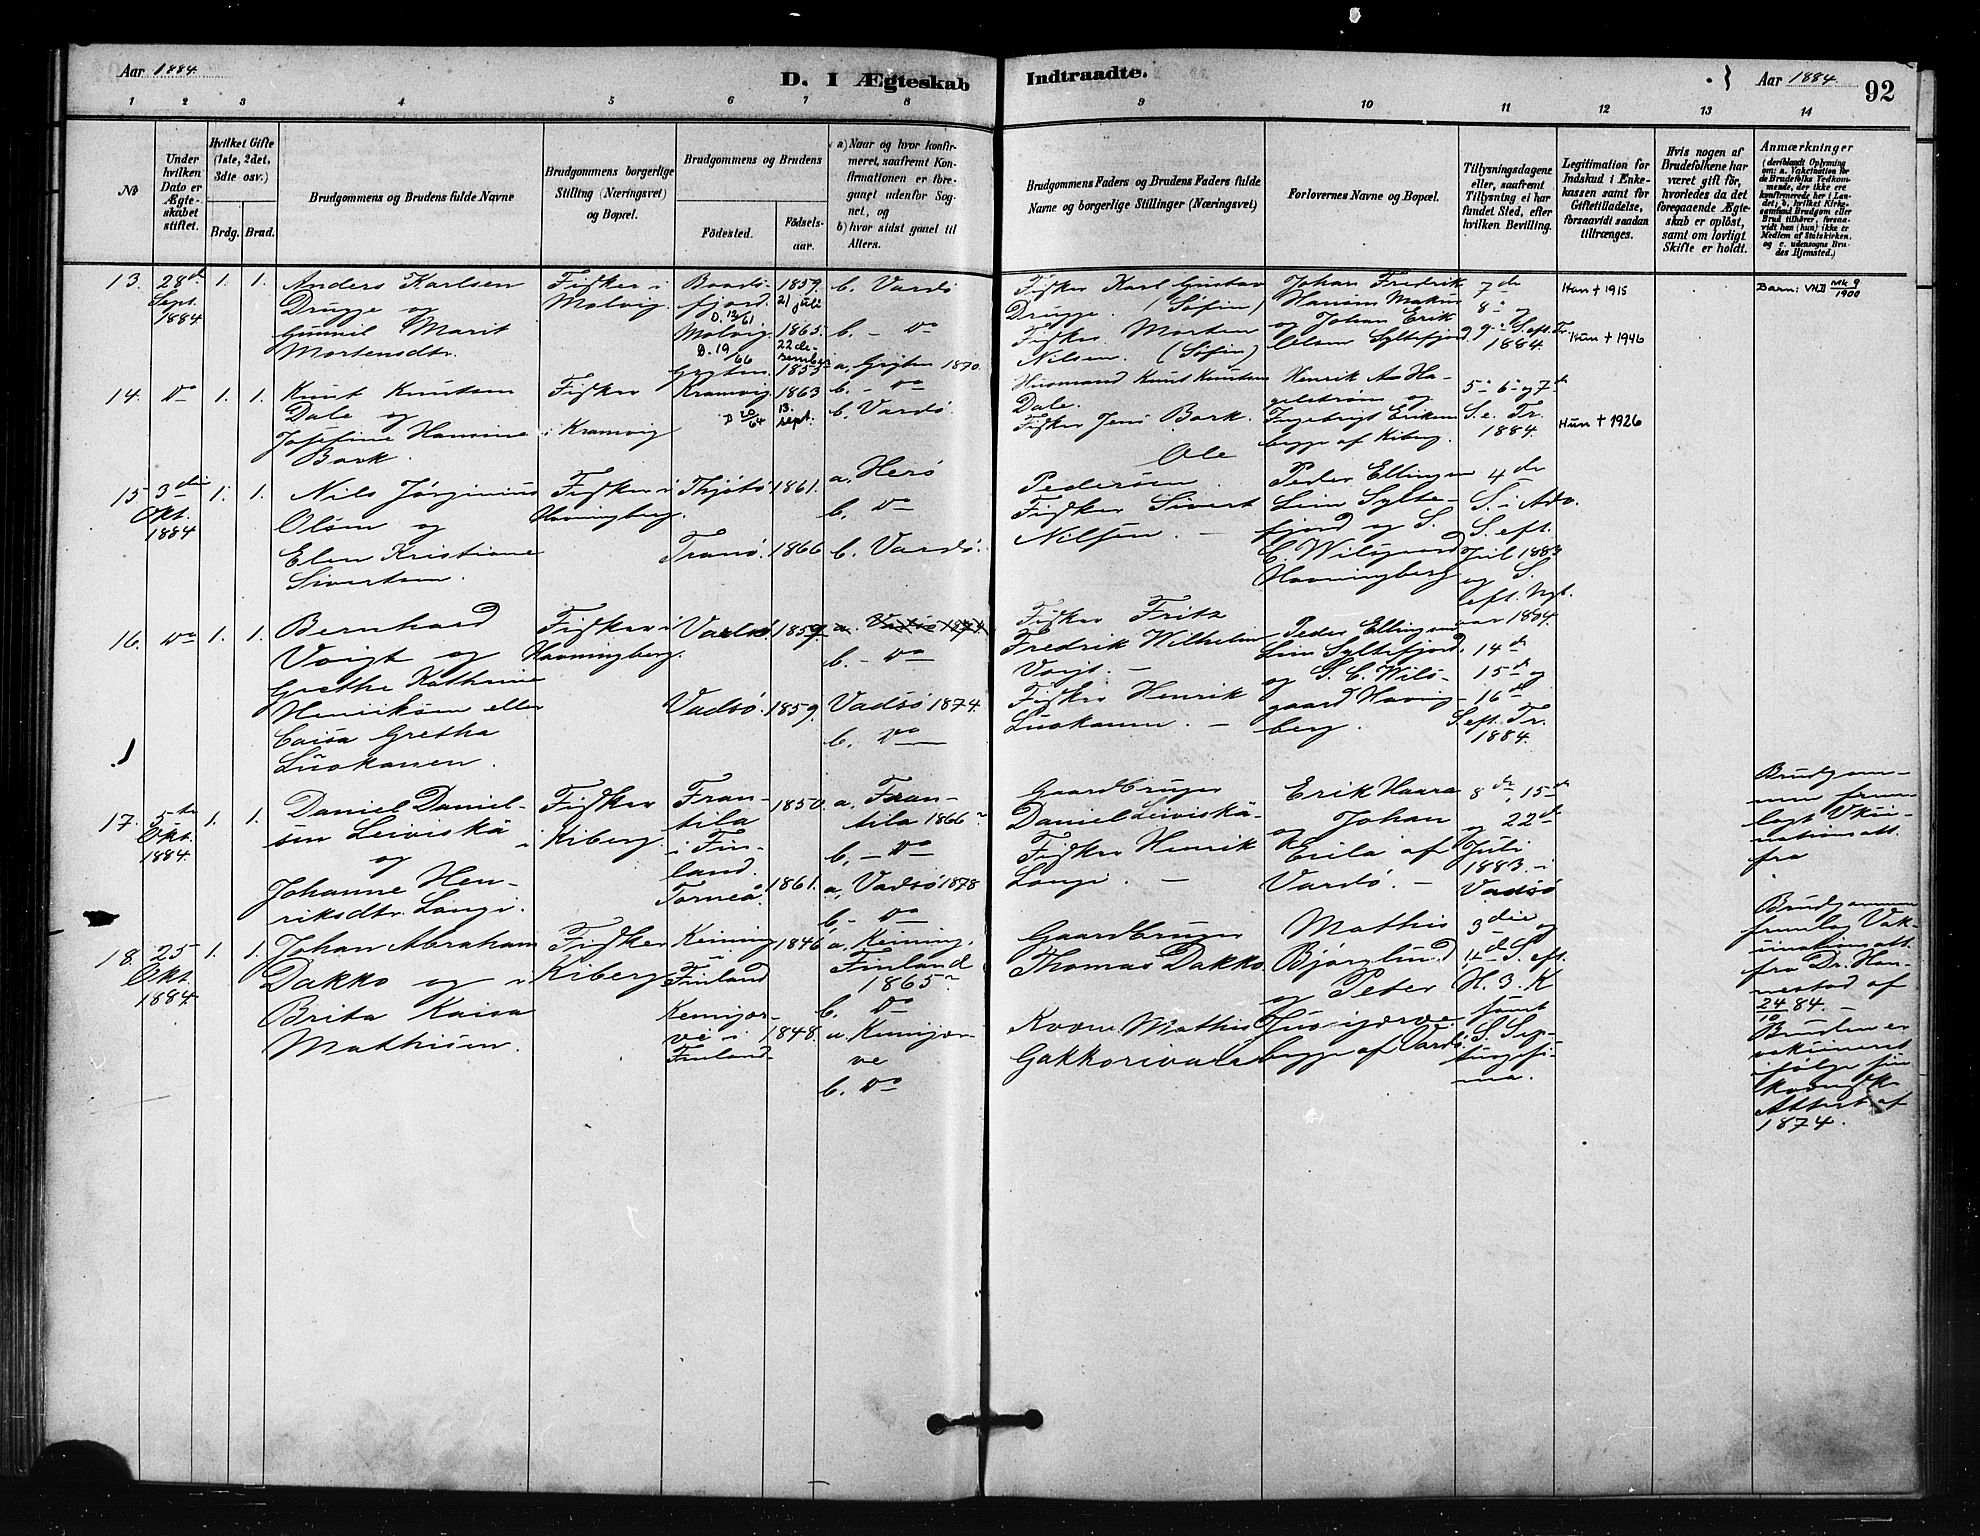 Aar 1884.
D. I Ægteskab Indtraadte.
Aar 1884.
92
1 2 3 4 5 6 7 8 9 10 11 12 13 14
No
Under
hvilken
Dato er
Ægte-
skabet
stiftet.
Hvilket Gifte
(1ste, 2det,
3die osv.)
Brdg. Brud.
Brudgommens og Brudens fulde Navne
Brudgommens borgerlige
Stilling (Næringsvei)
og Bopæl.
Brudgommens og Brudens
Fødested.
Fødsels-
aar.
a) Naar og hvor konfir-
meret, saafremt Kon-
firmationen er fore-
gaaet udenfor Sog-
net, og
b) hvor sidst gaaet til
Alters.
Brudgommens Faders og Brudens Faders fulde
Navne og borgerlige Stillinger (Næringsvei)
Forlovernes Navne og Bopæl.
Tillysningsdagene
eller, saafremt
Tillysning ei har
fundet Sted, efter
hvilken Bevilling.
Legitimation for
Indskud i Enke-
kassen samt for
Giftetilladelse,
forsaavidt saadan
tiltrænges.
Hvis nogen af
Brudefolkene har
været gift før,
hvorledes da det
foregaaende Ægte-
skab er opløst,
samt om lovligt
Skifte er holdt.
Anmærkninger
(deriblandt Oplysning
om: a. Vakcination for
de Brudefolks Vedkom-
mende, der ikke ere
konfirmerede her i Lan-
det; b. hvilket Kirke-
samfund Brudgom eller
Brud tilhører, forsaa-
vidt han (hun) ikke er
Medlem af Statskirken,
og c. udensogns Bru-
des Hjemsted.)
13. 28de
Sept.
1884
1. 1.
Anders Karlsen
Drugge og
Gunnil Marit
Mortensdtr.
Fisker i
Molvig.
Baads-
fjord.
D. 13/61
Molvig
D. 19/66
1859.
21 juli
1865.
22 de-
sember
b. Vardø
b. – Do
Fisker Karl Gustav
Drugge. (Søfin)
Fisker Morten
Nilsen. (Søfin)
Johan Fredrik
Hansen Makur
og Johan Erik
Olsen Syltefjord
7de
8e og
9e S. eft. Tr.
1884.
Han † 1915
Hun † 1946
Barn: VHD Mk 9/1900
14. Do
1. 1.
Knut Knutsen
Dale og
Josefine Hansine
Bark.
Fisker
i Kramvig
Grytten
Kramvig
D 20/64
1855
1863
13.
sept.
a. Grytten 1870.
b. – Do
b. Vardø.
Husmand Knut Knutsen
Dale.
Fisker Jens Bark.
Henrik A. Ha-
gelstrøm og
Ingebrigt Eriksen
begge af Kiberg.
5e 6e og 7de
S. e. Tr.
1884.
Hun † 1926
15. 3die
Okt.
1884
1. 1.
Nils Jørginius
Olsen og
Elen Kristiane
Sivertsen.
Fisker i
Havningberg.
Thjøtø
Tranø.
1861.
1866
a. Herø
b. Do
b. Vardø.
Ole
Pedersen.
Fisker Sivert
Nilsen. –
Peder Ellingsen
Lim Sylte-
fjord og S.
C. Wilsgaard
Havningberg
4de
S. i Adv.
S. eft.
Jul 1883
og S.
eft. Nyt-
aar 1884.
16. Do
1. 1.
Bernhard
Voigt og
Grethe Kathrine
Henriksen eller
Caisa Gretha
Luokanen.
Fisker i
Havningberg.
Vardø
Vadsø.
1859.
1859.
a. Vadsø 1874
b. – Do
Vadsø 1874.
b. Do
Fisker Fritz
Fredrik Wilhelm
Voigt. –
Fisker Henrik
Luokanen. –
Peder Ellingsen
Lim Syltefjord.
og S. C. Wils-
gaard Havnig-
berg.
14de
15de og
16de
S. eft. Tr.
1884.
17. 5te
Okt.
1884
1. 1.
Daniel Daniel-
sen Leiviskä
og
Johanne Hen-
riksdtr. Langi.
Fisker
i Kiberg.
Fran-
tila
i Fin-
land.
Torneå.
1850.
1861.
a. Fran-
tila 1866
b. – Do
a. Vadsø 1878
b. – Do
Gaardbruger
Daniel Leiviskä –
Fisker Henrik
Langi. –
Erik Haara
og Johan
Erila af
Vardø. –
8de, 15de
og 22de
Juli
1883 – i
Vadsø
Brudgom-
men frem-
lagt Vkci-
nationsatt.
fra
18. 25
Okt.
1884
1. 1.
Johan Abraham
Dakko og
Brita Kaisa
Mathisen.
Fisker
i Kiberg
Keining
i
Finland
Kemijær-
vi i
Finland.
1846
1848.
a. Keining,
Finland
1865
b. Do
a. Kemijær-
ve
b. Do
Gaardbruger
Thomas Dakko
Kvæn Mathis
Gakkorivala
Mathis
Bjørglund
og Peter
Jusijærve
begge af Vardø.
3die og
4de S. eft.
H. 3. K
samt
S. Sep-
tuagesi-
ma.
Brudgommen
fremlag Vak-
cinationsatt.
fra Dr. Han-
nestad af
24/10 84. –
Bruden er
vakcineret
ifølge fin
kongelk.
Attest af
1874.